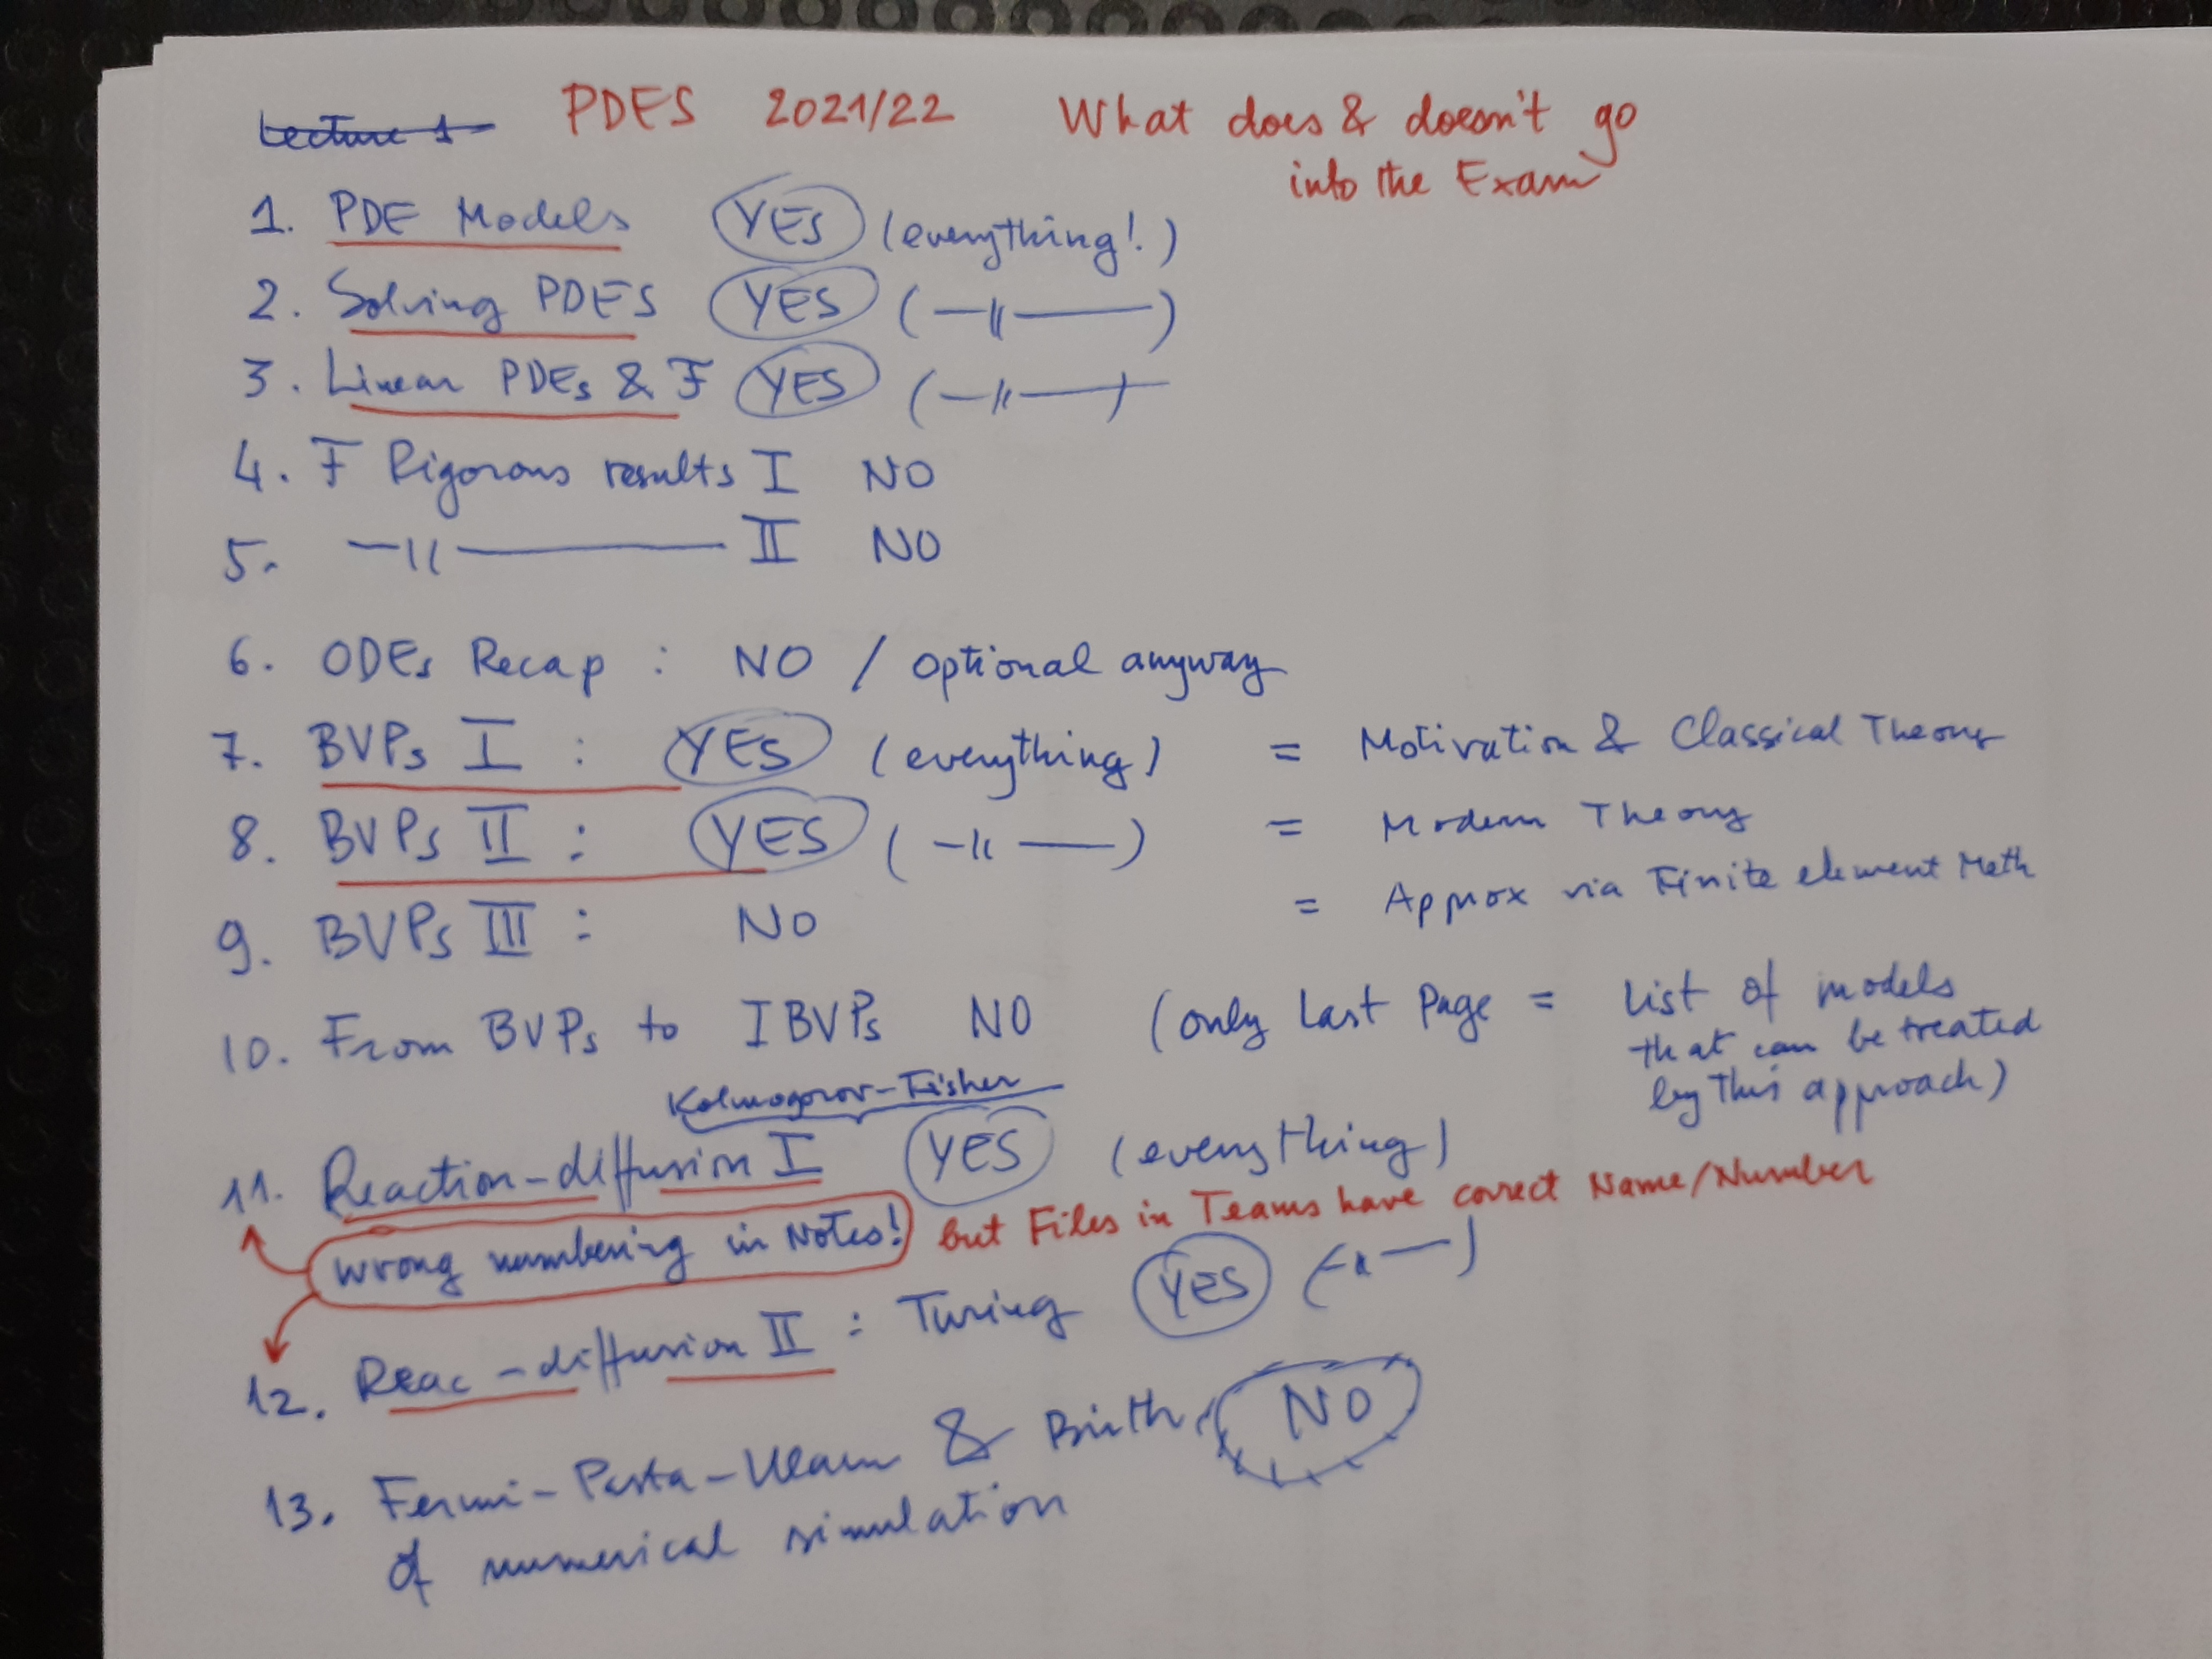 Lecture 1 PDES 2021/22 What does & doesn't go
into the Exam
1. PDE Models YES (everything!)
2. Solving PDES YES ( —||—— )
3. Linear PDEs & F YES ( —||—— )
4. F Rigorous results I NO
5. —||—— II NO
6. ODEs Recap : NO / optional anyway
7. BVPs I : YES (everything) = Motivation & Classical Theory
8. BVPs II : YES ( —||—— ) = Modern Theory
9. BVPs III : NO = Approx via Finite element Meth
10. From BVPs to IBVPs NO (only Last Page = List of models
that can be treated
by this approach)
Kolmogorov-Fisher
11. Reaction-diffusion I YES (everything)
wrong numbering in Notes! but Files in Teams have correct Name/Number
12. Reac-diffusion II : Turing YES ( —||— )
13. Fermi-Pasta-Ulam & Birth NO
of numerical simulation